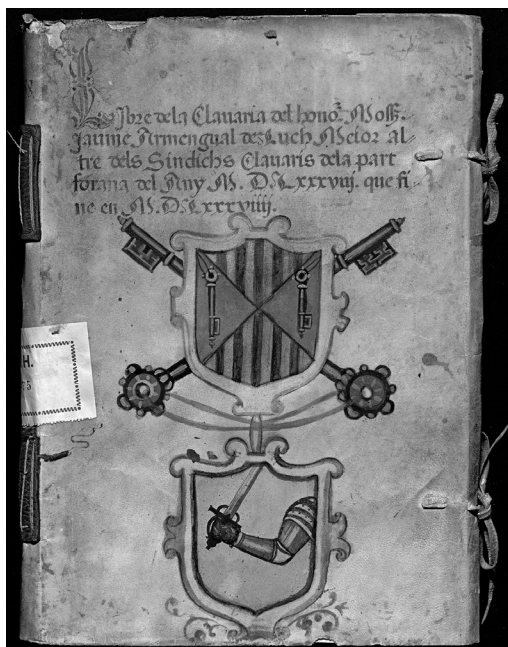 Libre dela Clauaria del honor. Moss.
Jaume Armengual de Luch Meior al-
tre dels Sindichs Clauaris dela part
forana del Any M. D. Lxxxvuj. que fi-
ne en M. D. Lxxxviiij.
H.
5